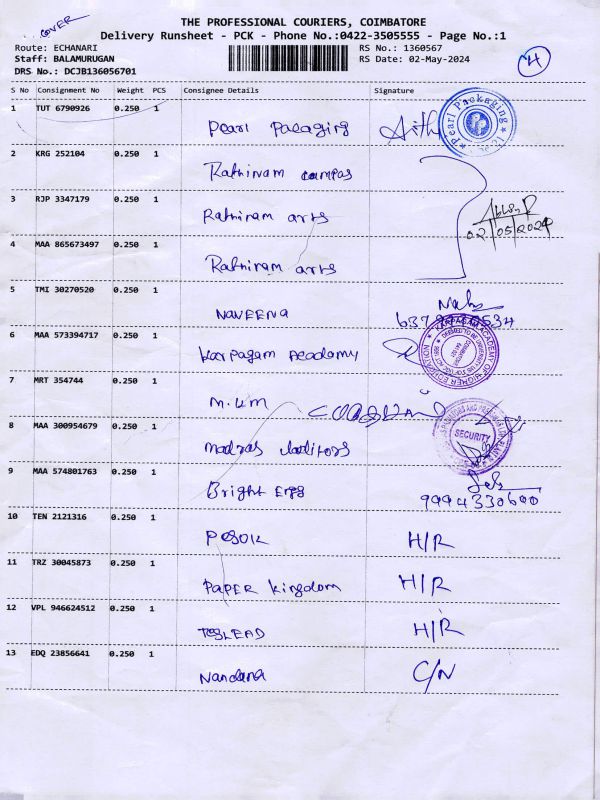 COVER
THE PROFESSIONAL COURIERS, COIMBATORE
Delivery Runsheet - PCK - Phone No.:0422-3505555 - Page No.:1
Route: ECHANARI
RS No.: 1360567
Staff: BALAMURUGAN
RS Date: 02-May-2024
DRS No.: DCJB136056701
4
S No Consignment No Weight PCS Consignee Details Signature
1 TUT 6790926 0.250 1
Pearl Packaging
Pearl Packaging
2 KRG 252104 0.250 1
Rathinam campas
3 RJP 3347179 0.250 1
Rathinam arts
02/05/2024
4 MAA 865673497 0.250 1
Rathinam arts
5 TMI 30270520 0.250 1
NAVEENA
6 MAA 573394717 0.250 1
Karpagam Academy
KARPAGAM ACADEMY OF HIGHER EDUCATION
7 MRT 354744 0.250 1
M.KM
8 MAA 300954679 0.250 1
madras auditors
SECURITY
9 MAA 574801763 0.250 1
Bright Engg
9994330600
10 TEN 2121316 0.250 1
H/R
11 TRZ 30045873 0.250 1
PAPER kingdom H/R
12 VPL 946624512 0.250 1
H/R
13 EDQ 23856641 0.250 1
Nandana C/N